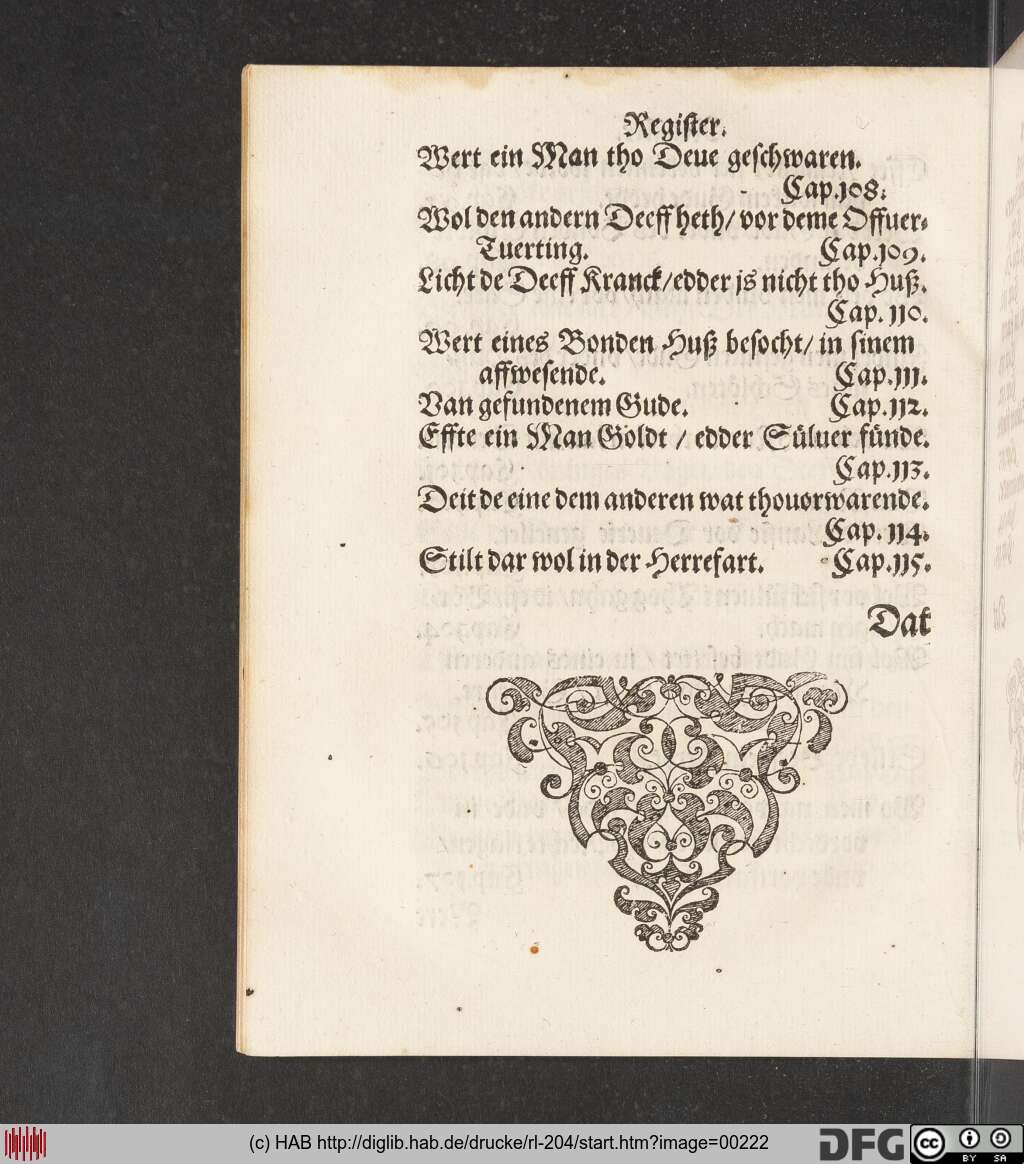 Register.
Wert ein Man tho Deue geschwaren.
Cap.108.
Wol den andern Deeff heth/ vor deme Offuer-
Tuerting. Cap.109.
Licht de Deeff Kranck/edder js nicht tho Huß.
Cap. 110.
Wert eines Bonden Huß besocht/ in sinem
affwesende. Cap.111.
Van gefundenem Gude. Cap.112.
Effte ein Man Goldt / edder Süluer fünde.
Cap.113.
Deit de eine dem anderen wat thouorwarende.
Cap. 114.
Stilt dar wol in der Herrefart. Cap.115.
Dat
(c) HAB http://diglib.hab.de/drucke/rl-204/start.htm?image=00222
DFG
cc BY SA